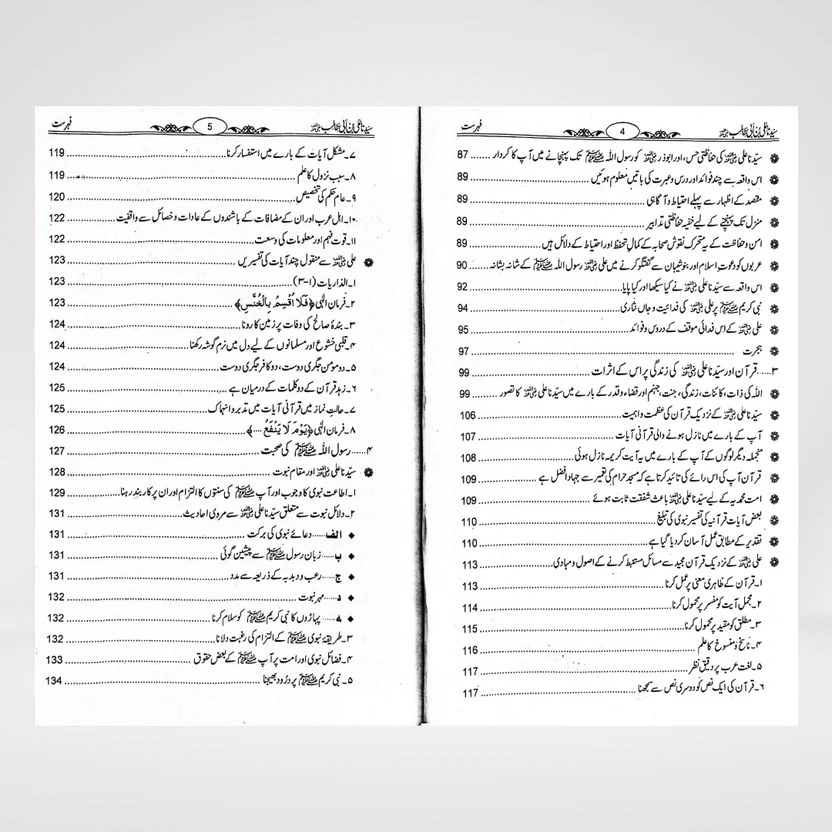 سیدنا علی بن ابی طالب رضی اللہ عنہ
4
فہرست
سیّدنا علی رضی اللہ عنہ کی حفاظتی حس، اور ابوذر رضی اللہ عنہ کو رسول اللہ ﷺ تک پہنچانے میں آپ کا کردار ....... 87
اس واقعہ سے چند فوائد اور درس و عبرت کی باتیں معلوم ہوئیں ....... 89
مقصد کے اظہار سے پہلے احتیاط و آگاہی ....... 89
منزل تک پہنچنے کے لیے خفیہ حفاظتی تدابیر ....... 89
امن و حفاظت کے یہ متحرک نقوش صحابہ کے کمالِ تحفظ اور احتیاط کے دلائل ہیں ....... 89
عربوں کو دعوتِ اسلام اور بنو شیبان سے گفتگو کرنے میں علی رضی اللہ عنہ رسول اللہ ﷺ کے شانہ بشانہ ....... 90
اس واقعہ سے سیّدنا علی رضی اللہ عنہ نے کیا سیکھا اور کیا پایا ....... 92
نبی کریم ﷺ پر علی رضی اللہ عنہ کی فدائیت و جاں نثاری ....... 94
علی رضی اللہ عنہ کے اس فدائی موقف کے دروس و فوائد ....... 95
ہجرت ....... 97
۳......قرآن اور سیّدنا علی رضی اللہ عنہ کی زندگی پر اس کے اثرات ....... 99
اللہ کی ذات، کائنات، زندگی، جنت، جہنم اور قضاء و قدر کے بارے میں سیّدنا علی رضی اللہ عنہ کا تصور ....... 99
سیّدنا علی رضی اللہ عنہ کے نزدیک قرآن کی عظمت و اہمیت ....... 106
آپ کے بارے میں نازل ہونے والی قرآنی آیات ....... 107
منجملہ دیگر لوگوں کے آپ کے بارے میں یہ آیت کریمہ نازل ہوئی ....... 108
قرآن آپ کی اس رائے کی تائید کرتا ہے کہ مسجد حرام کی تعمیر سے جہاد افضل ہے ....... 109
امت محمدیہ کے لیے سیّدنا علی رضی اللہ عنہ باعث شفقت ثابت ہوئے ....... 109
بعض آیات قرآنیہ کی تفسیر نبوی کی تبلیغ ....... 110
تقدیر کے مطابق عمل آسان کر دیا گیا ہے ....... 110
علی رضی اللہ عنہ کے نزدیک قرآن مجید سے مسائل مستنبط کرنے کے اصول و مبادی ....... 113
۱۔ قرآن کے ظاہری معنی پر عمل کرنا ....... 113
۲۔ مجمل آیت کو مفسر پر محمول کرنا ....... 114
۳۔ مطلق کو مقید پر محمول کرنا ....... 115
۴۔ ناسخ و منسوخ کا علم ....... 116
۵۔ لغت عرب پر دقیق نظر ....... 117
۶۔ قرآن کی ایک نص کو دوسری نص سے سمجھنا ....... 117
سیدنا علی بن ابی طالب رضی اللہ عنہ
5
فہرست
۷۔ مشکل آیات کے بارے میں استفسار کرنا ....... 119
۸۔ سبب نزول کا علم ....... 119
۹۔ عام حکم کی تخصیص ....... 120
۱۰۔ اہل عرب اور ان کے مضافات کے باشندوں کے عادات و خصائل سے واقفیت ....... 122
۱۱۔ قوت فہم اور معلومات کی وسعت ....... 122
علی رضی اللہ عنہ سے منقول چند آیات کی تفسیریں ....... 123
۱۔ الذاریات (۱-۳) ....... 123
۲۔ فرمان الٰہی ﴿فَلَا اُقْسِمُ بِالْخُنَّسِ﴾ ....... 123
۳۔ بندۂ صالح کی وفات پر زمین کا رونا ....... 124
۴۔ قلبی خشوع اور مسلمانوں کے لیے دل میں نرم گوشہ رکھنا ....... 124
۵۔ دو مومن جگری دوست، دو کافر جگری دوست ....... 124
۶۔ زہد قرآن کے دو کلمات کے درمیان ہے ....... 125
۷۔ حالت نماز میں قرآنی آیات میں تدبر و انہماک ....... 125
۸۔ فرمان الٰہی ﴿يَوْمَ لَا يَنْفَعُ ....﴾ ....... 126
۴......رسول اللہ ﷺ کی صحبت ....... 127
سیّدنا علی رضی اللہ عنہ اور مقام نبوت ....... 128
۱۔ اطاعت نبوی کا وجوب اور آپ ﷺ کی سنتوں کا التزام اور ان پر کاربند رہنا ....... 129
۲۔ دلائل نبوت سے متعلق سیّدنا علی رضی اللہ عنہ سے مروی احادیث ....... 131
الف...... دعائے نبوی کی برکت ....... 131
ب...... زبان رسول ﷺ سے پیشین گوئی ....... 131
ج...... رعب و دبدبہ کے ذریعہ سے مدد ....... 131
د...... مہر نبوت ....... 132
ہ...... پہاڑوں کا نبی کریم ﷺ کو سلام کرنا ....... 132
۳۔ طریقۂ نبوی ﷺ کے التزام کی رغبت دلانا ....... 132
۴۔ فضائل نبوی اور امت پر آپ ﷺ کے بعض حقوق ....... 133
۵۔ نبی کریم ﷺ پر درود بھیجنا ....... 134